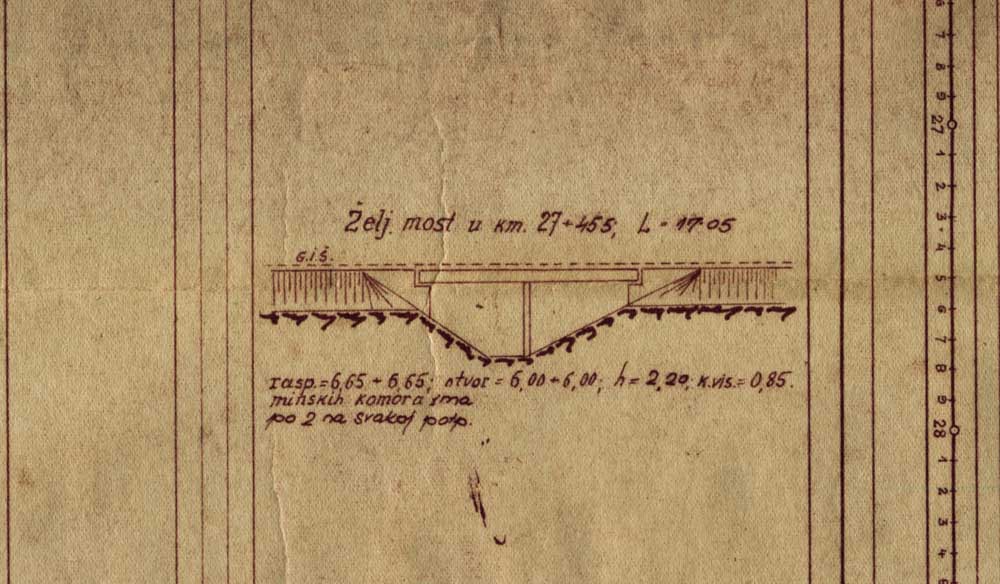 Želj. most u km. 27+455; L = 17.05
G.I.Š.
rasp.=6,65 + 6,65; otvor = 6,00+6,00; h = 2,20; k.vis.= 0,85.
minskih komora ima
po 2 na svakoj potp.
6
7
8
9
27
1
2
3
4
5
6
7
8
9
28
1
2
3
4